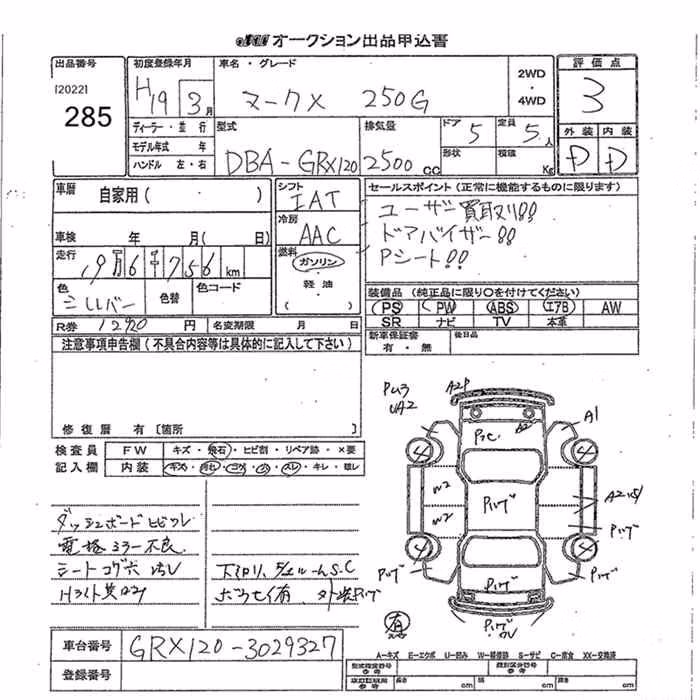 オークション出品申込書
出品番号
[2022]
285
初度登録年月
H19 3月
車名・グレード
マークX 250G
2WD
・
4WD
評価点
3
ディーラー・並行
モデル年式 年
ハンドル 左・右
型式
DBA-GRX120
排気量
2500 CC
ドア 5
定員 5人
形状
積載
Kg
外装 内装
D D
車歴
自家用( )
車検 年 月( 日)
走行
19万6千756km
色
シルバー
色替
色コード
シフト
IAT
冷房
AAC
燃料
ガソリン
・
軽油
( )
セールスポイント(正常に機能するものに限ります)
ユーザー買取り!!
ドアバイザー!!
Pシート!!
装備品(純正品に限り〇を付けてください)
PS PW ABS エアB AW
SR ナビ TV 本革
新車保証書
有・無
後日品
R券 12920円
名変期限 月 日
注意事項申告欄(不具合内容等は具体的に記入して下さい)
修復歴 有〔箇所 〕
検査員
記入欄
FW キズ・飛石・ヒビ割・リペア跡・×要
内装 キズ・汚れ・コゲ・穴・スレ・キレ・破レ
ダッシュボードヒビワレ
電格ミラー不良
シートコゲ穴 汚レ
下マワリ、S.C
有
A2P
A1
A2
4 4
W2
W2
Pハゲ
Pハゲ
Pハゲ
4 4
Pハゲ
Pハゲ
Pハゲ
有
車台番号 GRX120-3029327
登録番号
A-キズ E-エクボ U-凹み W-補修跡 S-サビ C-腐食 XX-交換済
型式指定番号
参考
類別区分番号
参考
車両記載寸法
参考
長さ cm 幅 cm 高さ cm